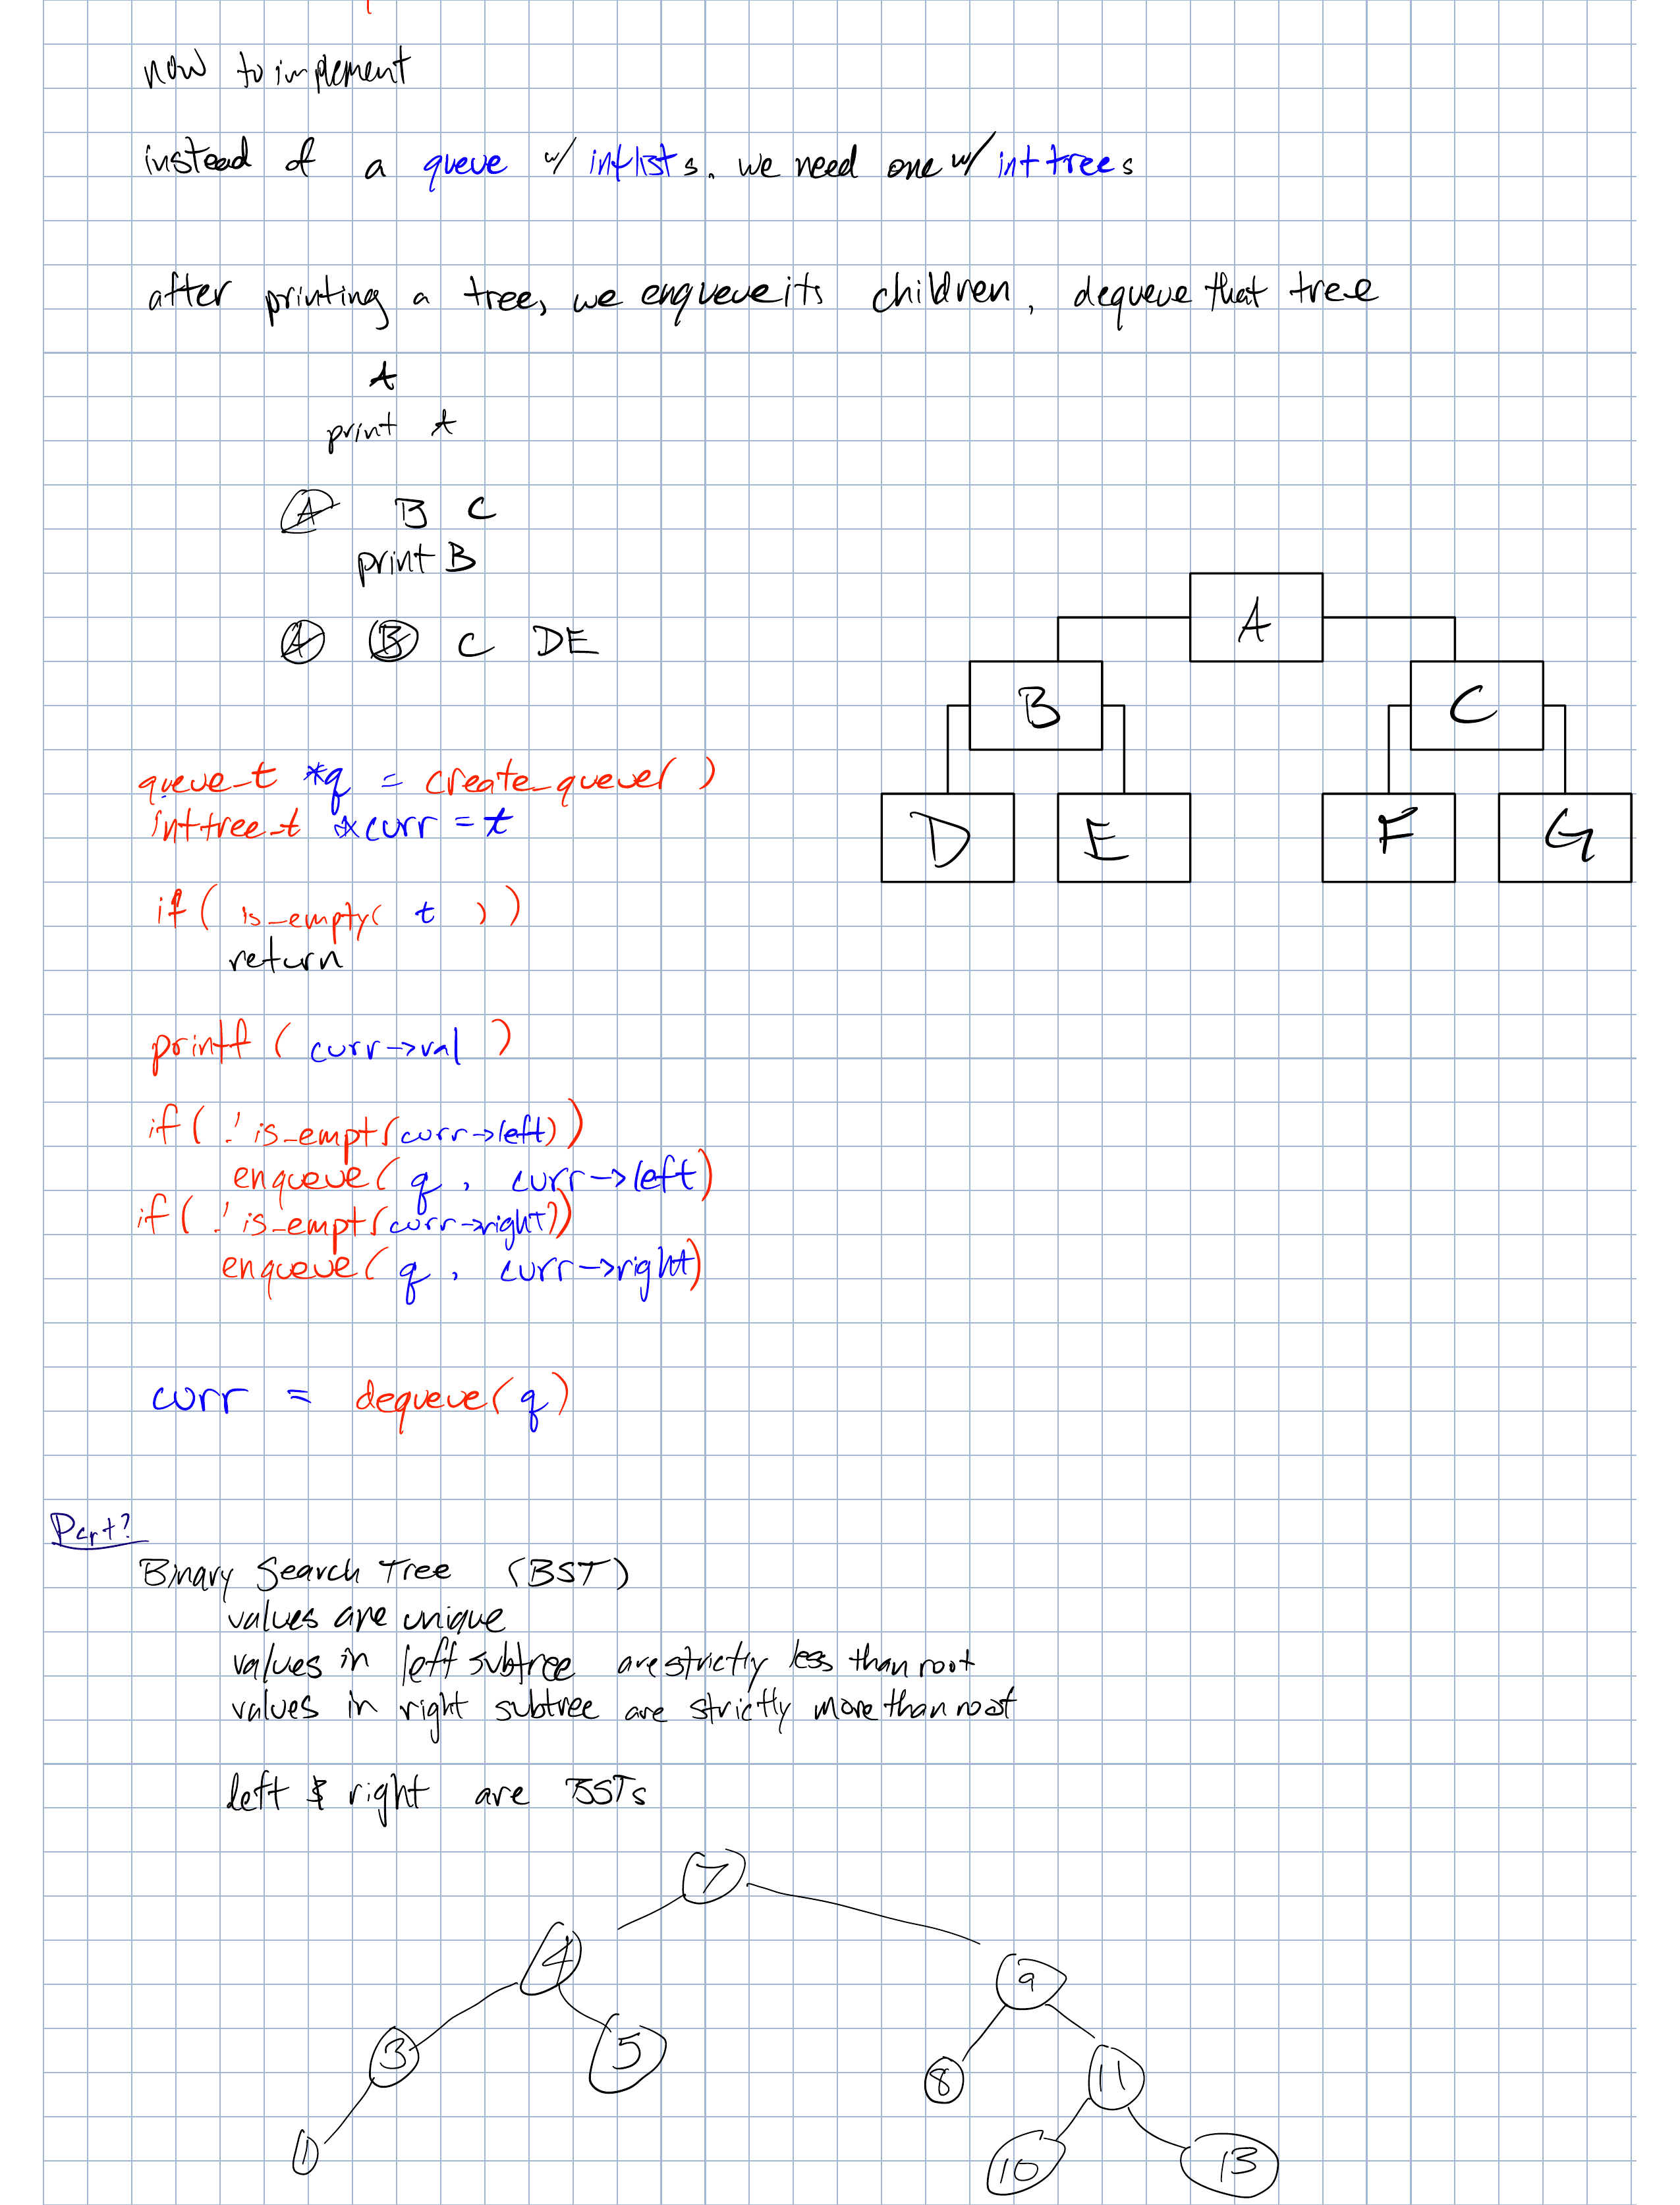 now to implement
instead of a queue w/ intlists. we need one w/ int trees
after printing a tree, we enqueue its children, dequeue that tree
A
print A
A B C
print B
A B C DE
A
B C
D E F G
queue_t *q = create_queue( )
inttree_t *curr = t
if ( is_empty( t ) )
return
printf ( curr->val )
if ( ! is_empt (curr->left) )
enqueue( q , curr->left)
if ( ! is_empt (curr->right) )
enqueue( q , curr->right)
curr = dequeue( q )
Part?
Binary Search Tree (BST)
values are unique
values in left subtree are strictly less than root
values in right subtree are strictly more than root
left & right are BSTs
7
4 9
3 5 8 11
1 10 13